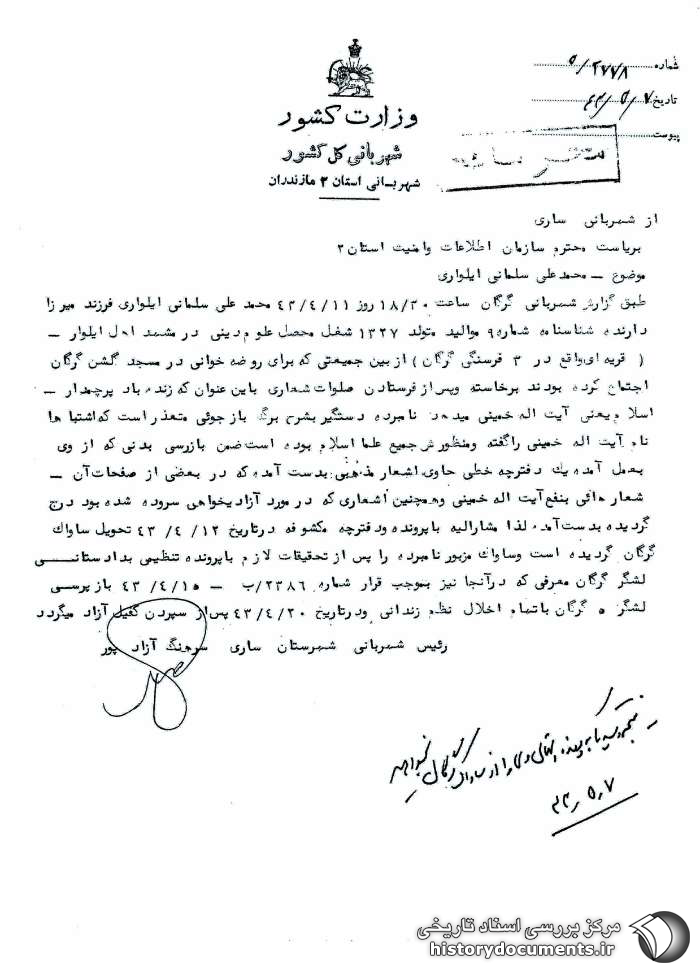 شماره ۵/۲۷۷۸
تاریخ ۴۳/۵/۷
پیوست
وزارت کشور
شهربانی کل کشور
شهربانی استان ۲ مازندران
از شهربانی ساری
بریاست محترم سازمان اطلاعات وامنیت استان۲
موضوع – محمدعلی سلمانی ایلواری
طبق گزارش شهربانی گرگان ساعت ۱۸/۳۰ روز ۴۳/۴/۱۱ محمد علی سلمانی ایلواری فرزند میرزا
دارنده شناسنامه شماره۹ موالید متولد ۱۳۲۷ شغل محصل علوم دینی در مشهد اهل ایلوار –
( قریه ای واقع در ۳ فرسنگی گرگان ) از بین جمعیتی که برای روضه خوانی در مسجد گلشن گرگان
اجتماع کرده بودند برخاسته وپس از فرستادن صلوات شعاری باین عنوان که زنده باد پرچمدار –
اسلام یعنی آیت اله خمینی میدهد نامبرده دستگیر بشرح برگ بازجوئی متعذر است که اشتبا ها
نام آیت اله خمینی راگفته ومنظورش جمیع علما اسلام بوده است ضمن بازرسی بدنی که از وی
بعمل آمده یك دفترچه خطی حاوی اشعار مذهبی بدست آمده که در بعضی از صفحات آن –
شعار هائی بنفع آیت اله خمینی وهمچنین اشعاری که در مورد آزادیخواهی سروده شده بود درج
گردیده بدست آمد لذا مشارالیه باپرونده ودفترچه مکشوفه درتاریخ ۴۳/۴/۱۲ تحویل ساواك
گرگان گردیده است وساواك مزبور نامبرده را پس از تحقیقات لازم باپرونده تنظیمی بدادستانی
لشگر گرگان معرفی که درآنجا نیز بموجب قرار شماره ۲۳۸۶/ب – ۴۳/۴/۱۵ بازپرسی
لشگر ۵ گرگان باتهام اخلال نظم زندانی ودرتاریخ ۴۳/۴/۲۰ پس از سپردن کفیل آزاد میگردد
رئیس شهربانی شهرستان ساری سرهنگ آزاد پور
۴۳٫۵٫۷
مرکز بررسی اسناد تاریخی
historydocuments.ir